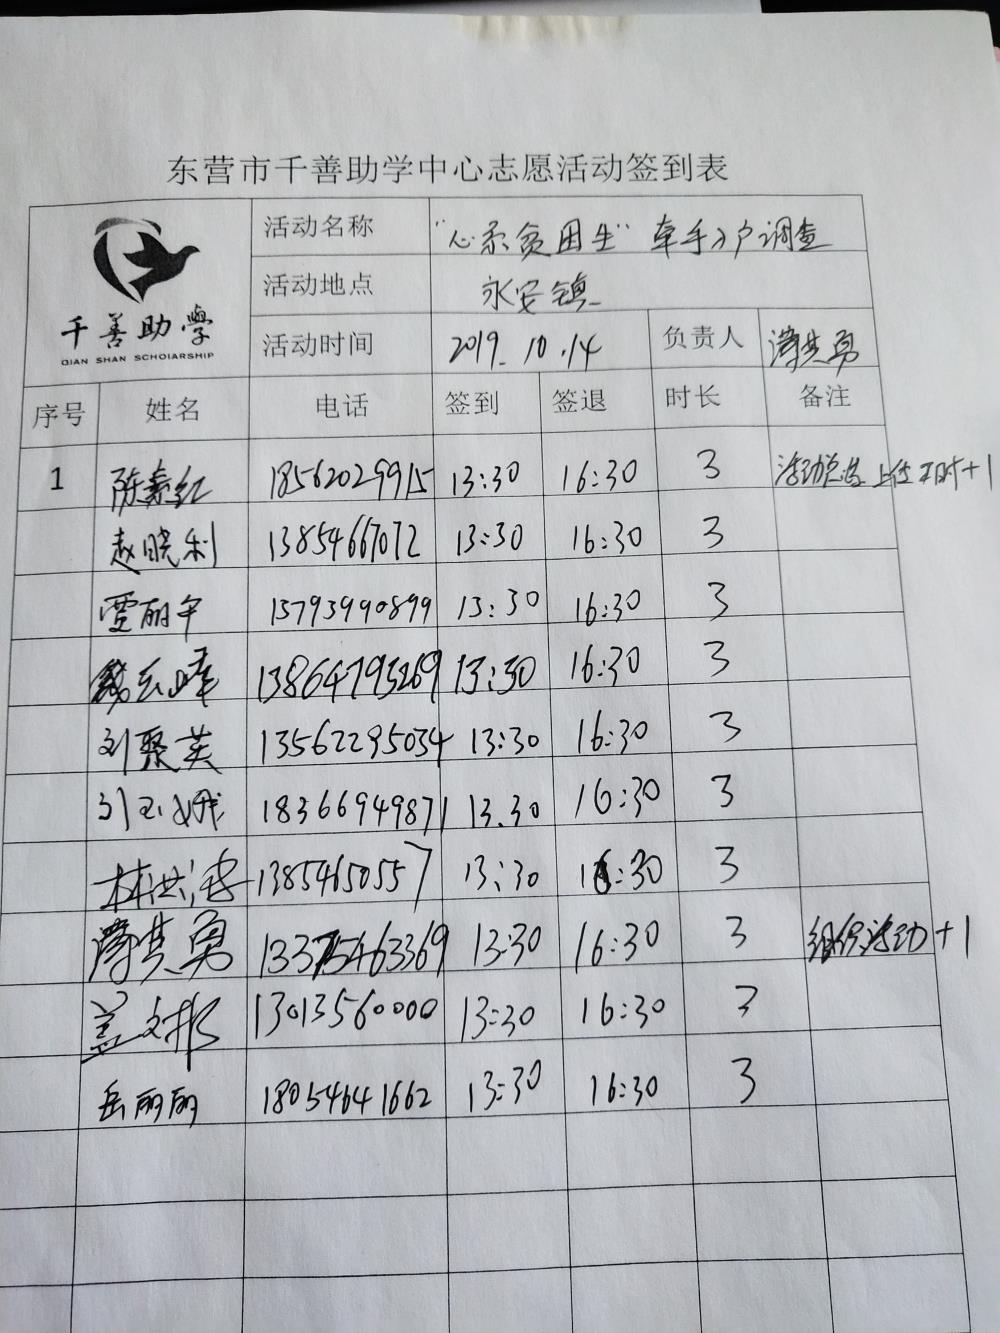 东营市千善助学中心志愿活动签到表
千善助學
QIAN SHAN SCHOIARSHIP
活动名称 “心系贫困生”牵手入户调查
活动地点 永安镇
活动时间 2019.10.14 负责人 薄其勇
序号 姓名 电话 签到 签退 时长 备注
1 陈素红 18562029915 13:30 16:30 3 活动总结 上传 工时+1
赵晓利 13854667072 13:30 16:30 3
贾丽平 15793990899 13:30 16:30 3
云峰 13864793269 13:30 16:30 3
刘聚英 13562295034 13:30 16:30 3
刘玉娥 18366949871 13.30 16:30 3
林 13854650557 13:30 16:30 3
薄其勇 13375463369 13:30 16:30 3 组织活动+1
盖文彬 13013560000 13:30 16:30 3
岳丽丽 18054641662 13:30 16:30 3